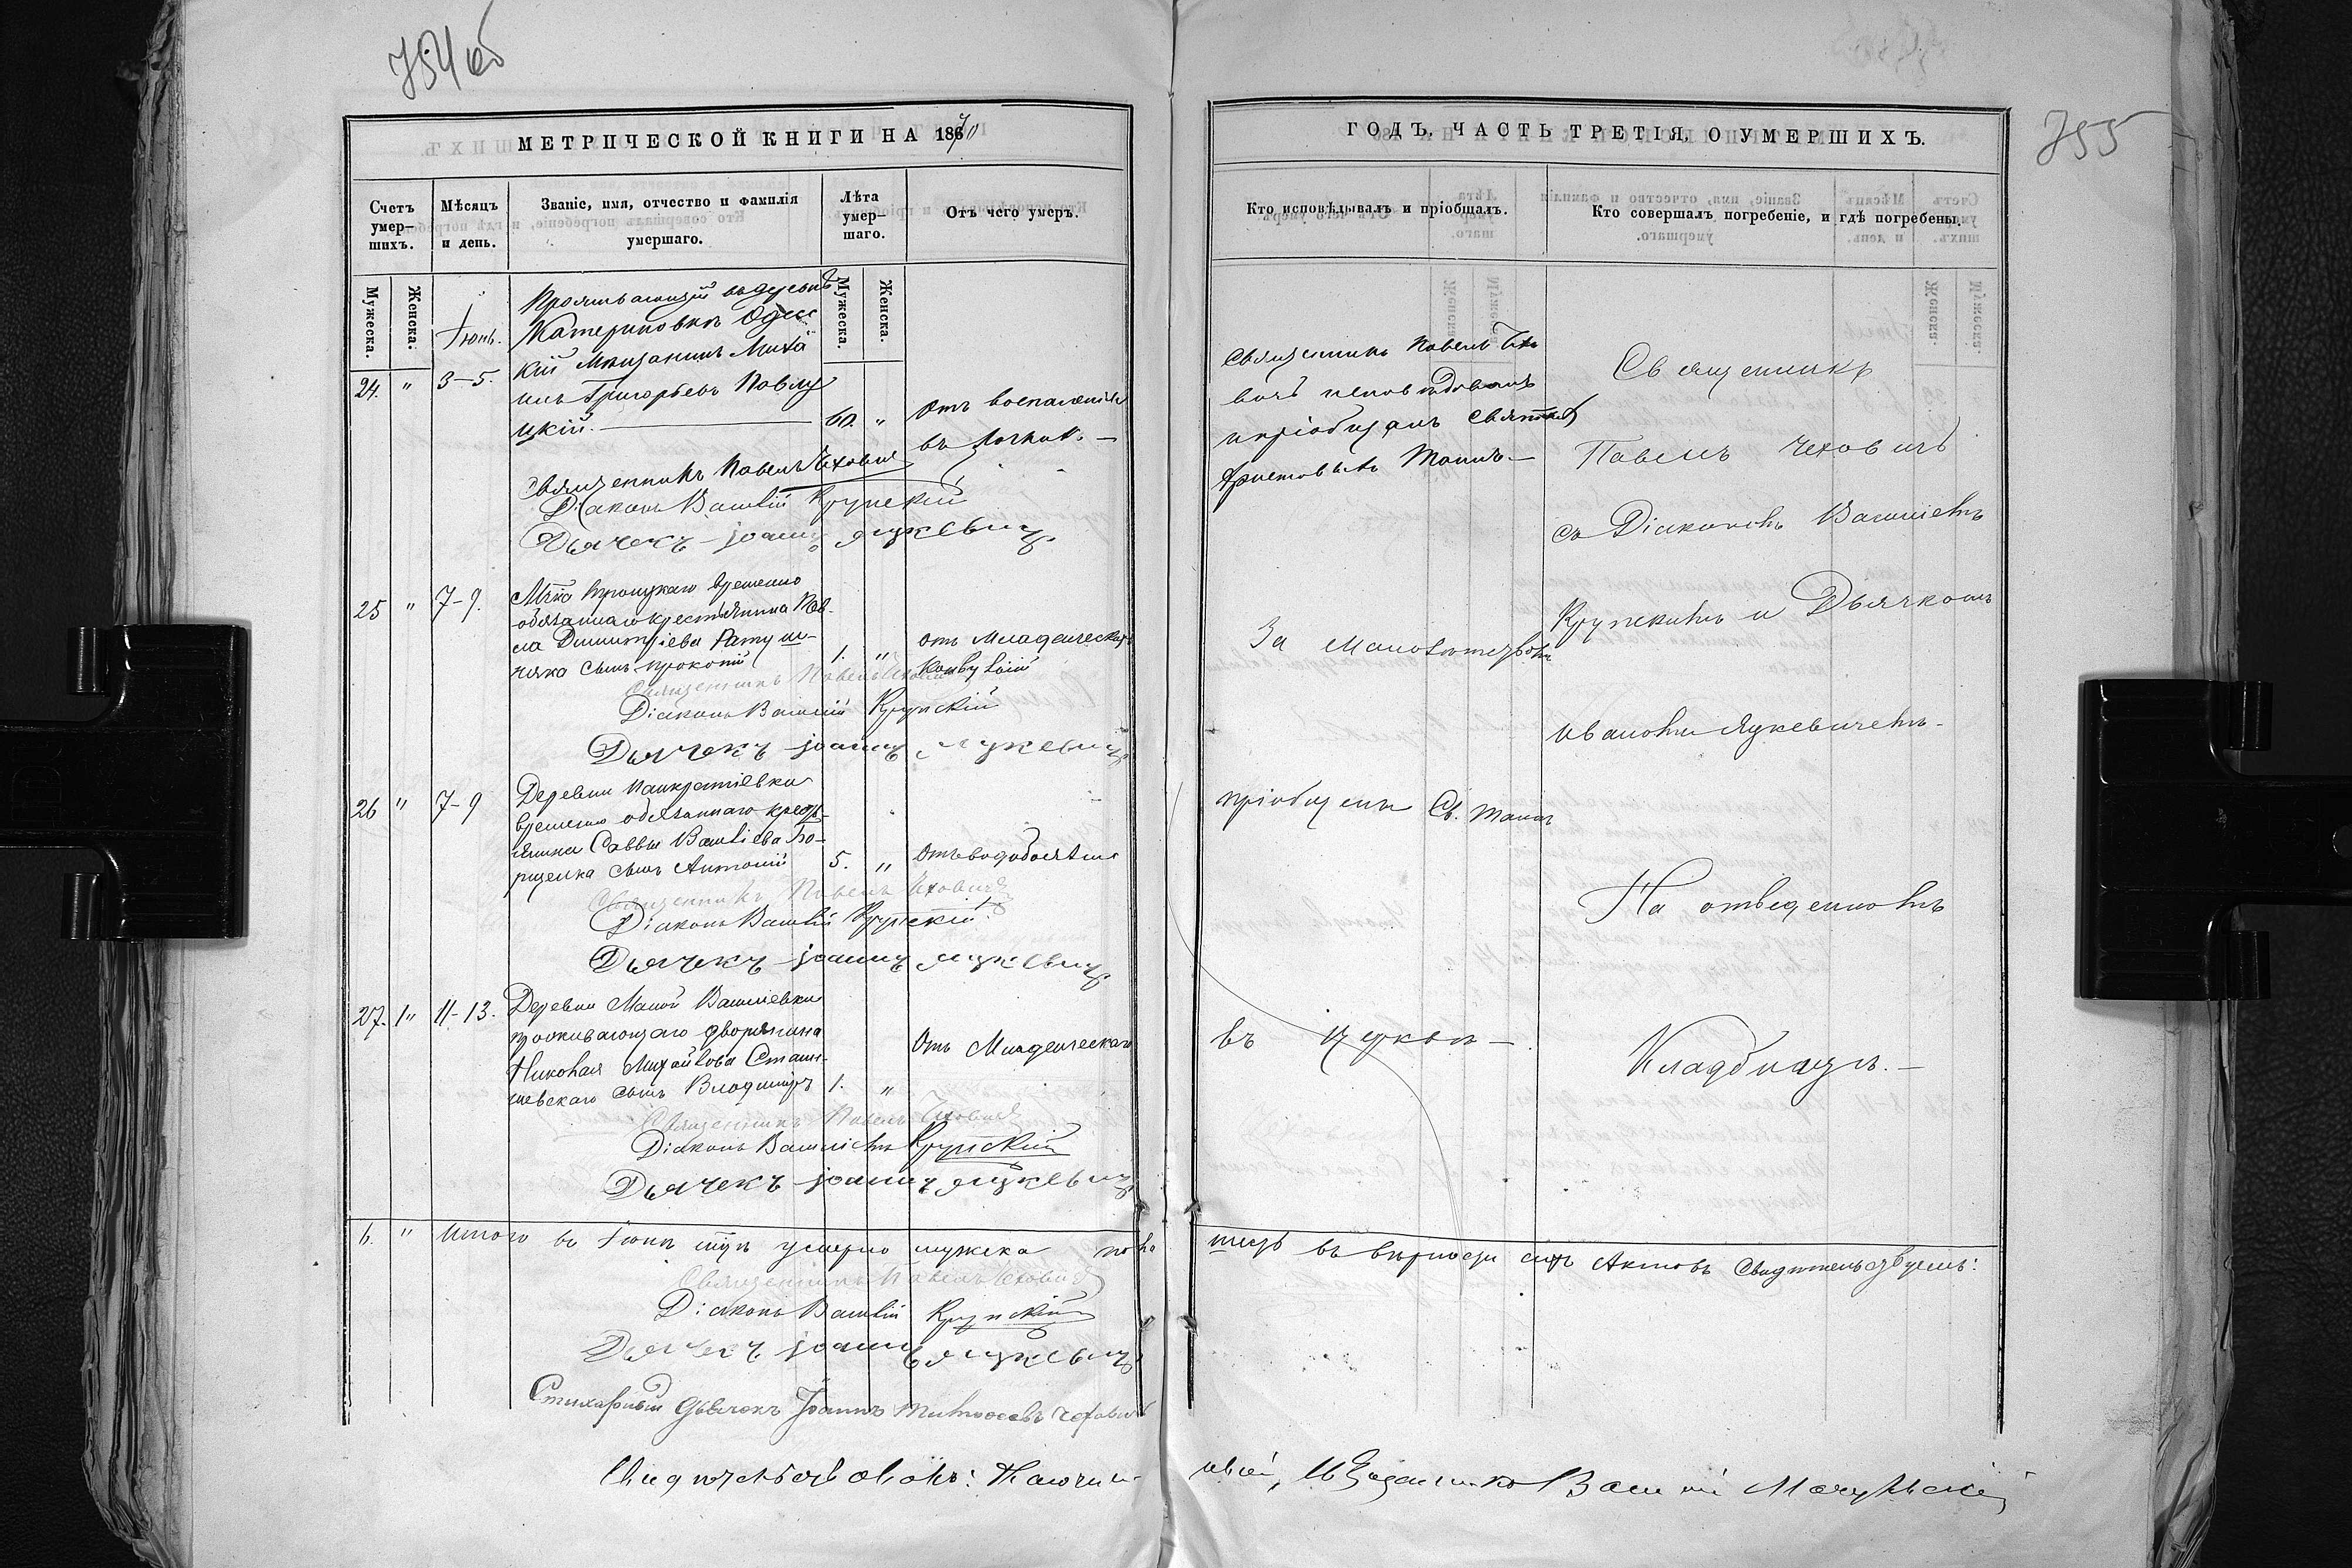 754 об
МЕТРИЧЕСКОЙ КНИГИ НА 1870
Счетъ умер-
шихъ.
Мѣсяцъ
и день.
Званіе, имя, отчество и фамилія
умершаго.
Лѣта
умер-
шаго.
Отъ чего умеръ.
Мужеска.
Женска.
Мужеска.
Женска.
Іюнь.
24. " 3-5.
Проживающій въ деревнѣ
Катериновкѣ Одес
кій Мѣщанинъ Михаи
илъ Григорьевъ Павлу
цкій.
60. "
Отъ воспаленія
въ
Священникъ Павелъ Чеховичъ
Діаконъ Василій Крупскій
Дьячекъ Іоаннъ Яцкевичъ
25 " 7-9.
временно
обязаннаго крестьянина Пав-
ла Димитріева
сынъ Прокопій
1. "
отъ Младенческой
Конвулсіи
Священникъ Павелъ Чеховичъ
Діаконъ Василій Крупскій
Дьячекъ Іоаннъ Яцкевичъ
26 " 7-9
Деревни Панкратіевки
временно обязаннаго кресть-
янина Саввы Василіева Бо-
рщенка сынъ Антоній
5. "
Отъ водобоязни
Священникъ Павелъ Чеховичъ
Діаконъ Василій Крупскій
Дьячекъ Іоаннъ Яцкевичъ
27. 1" 11-13.
Деревни Малой Василіевки
проживающаго дворянина
Николая Михайлова Стани-
шевскаго сынъ Владиміръ
1. "
Отъ Младенческаго
Священникъ Павелъ Чеховичъ
Діаконъ Василій Крупскій
Дьячекъ Іоаннъ Яцкевичъ
" Итого въ Іюнѣ мцѣ умерло мужеска пола
Священникъ Павелъ Чеховичъ
Діаконъ Василій Крупскій
Дьячекъ Іоаннъ Яцкевичъ
Стихарный дьячекъ Іоаннъ Чеховичъ
755
ГОДЪ, ЧАСТЬ ТРЕТІЯ, О УМЕРШИХЪ.
Кто исповѣдывалъ и пріобщалъ.
Кто совершалъ погребеніе, и гдѣ погребены.
Священникъ Павелъ Чехо
вичъ исповѣдовалъ
и пріобщалъ Святыхъ
Христовыхъ Таинъ.
За малолетствомъ
пріобщенъ Св. Таинъ
въ церкви
Священникъ
Павелъ Чеховичъ
съ Діакономъ Василіемъ
Крупскимъ и Дьячкомъ
Иваномъ Яцкевичемъ
На отведенномъ
Кладбищѣ.
въ вѣрности сихъ Актовъ свидѣтельствуемъ:
Свидѣтельствовалъ:
Василій